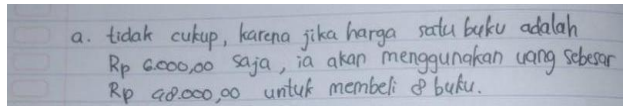 a. tidak cukup, karena jika harga satu buku adalah
Rp 6.000,00 saja, ia akan menggunakan uang sebesar
Rp 48.000,00 untuk membeli 8 buku.